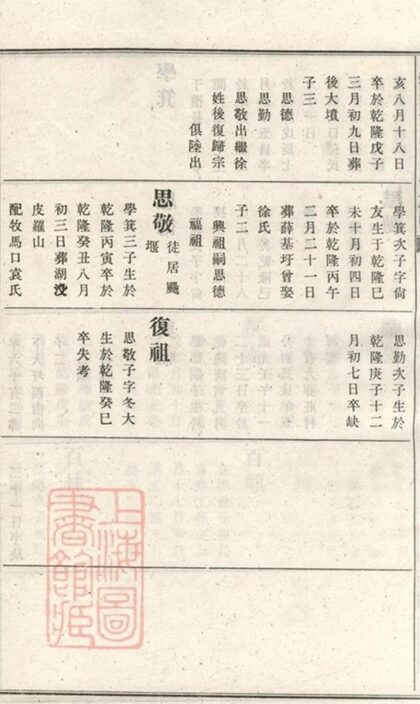 亥八月十八日
卒於乾隆戊子
三月初九日葬
後大墳
子三
思德
思勤
思敬出繼徐
姓後復歸宗
俱陸出
學箕次子字尙
友生于乾隆己
未十月初四日
卒於乾隆丙午
二月二十一日
葬薛基圩曾娶
徐氏
子二
興祖嗣思德
福祖
思敬 徒居颺
堰
學箕三子生於
乾隆丙寅卒於
乾隆癸丑八月
初三日葬湖没
皮羅山
配牧馬口袁氏
思勤次子生於
乾隆庚子十二
月初七日卒缺
復祖
思敬子字冬大
生於乾隆癸巳
卒失考
上海圖
書館藏